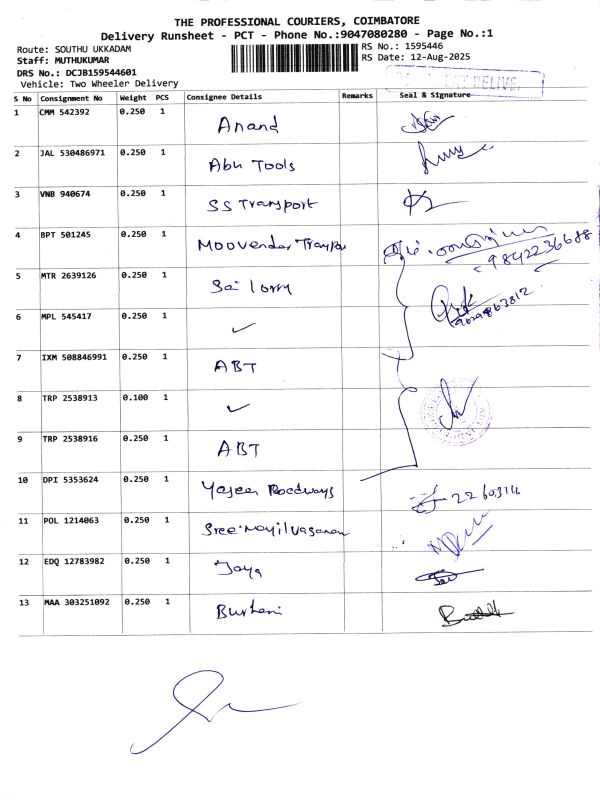 THE PROFESSIONAL COURIERS, COIMBATORE
Delivery Runsheet - PCT - Phone No.:9047080280 - Page No.:1
Route: SOUTHU UKKADAM
RS No.: 1595446
Staff: MUTHUKUMAR
RS Date: 12-Aug-2025
DRS No.: DCJB159544601
Vehicle: Two Wheeler Delivery
S No Consignment No Weight PCS Consignee Details Remarks Seal & Signature
1 CMM 542392 0.250 1 Anand
2 JAL 530486971 0.250 1 Abu Tools
3 VNB 940674 0.250 1 SS Transport
4 BPT 501245 0.250 1 Moovendar
5 MTR 2639126 0.250 1 Sai lorry
6 MPL 545417 0.250 1 ✓
7 IXM 508846991 0.250 1 ABT
8 TRP 2538913 0.100 1 ✓
9 TRP 2538916 0.250 1 ABT
10 DPI 5353624 0.250 1 Yaseen Roadways
11 POL 1214063 0.250 1
12 EDQ 12783982 0.250 1 Jaya
13 MAA 303251092 0.250 1 Burhani